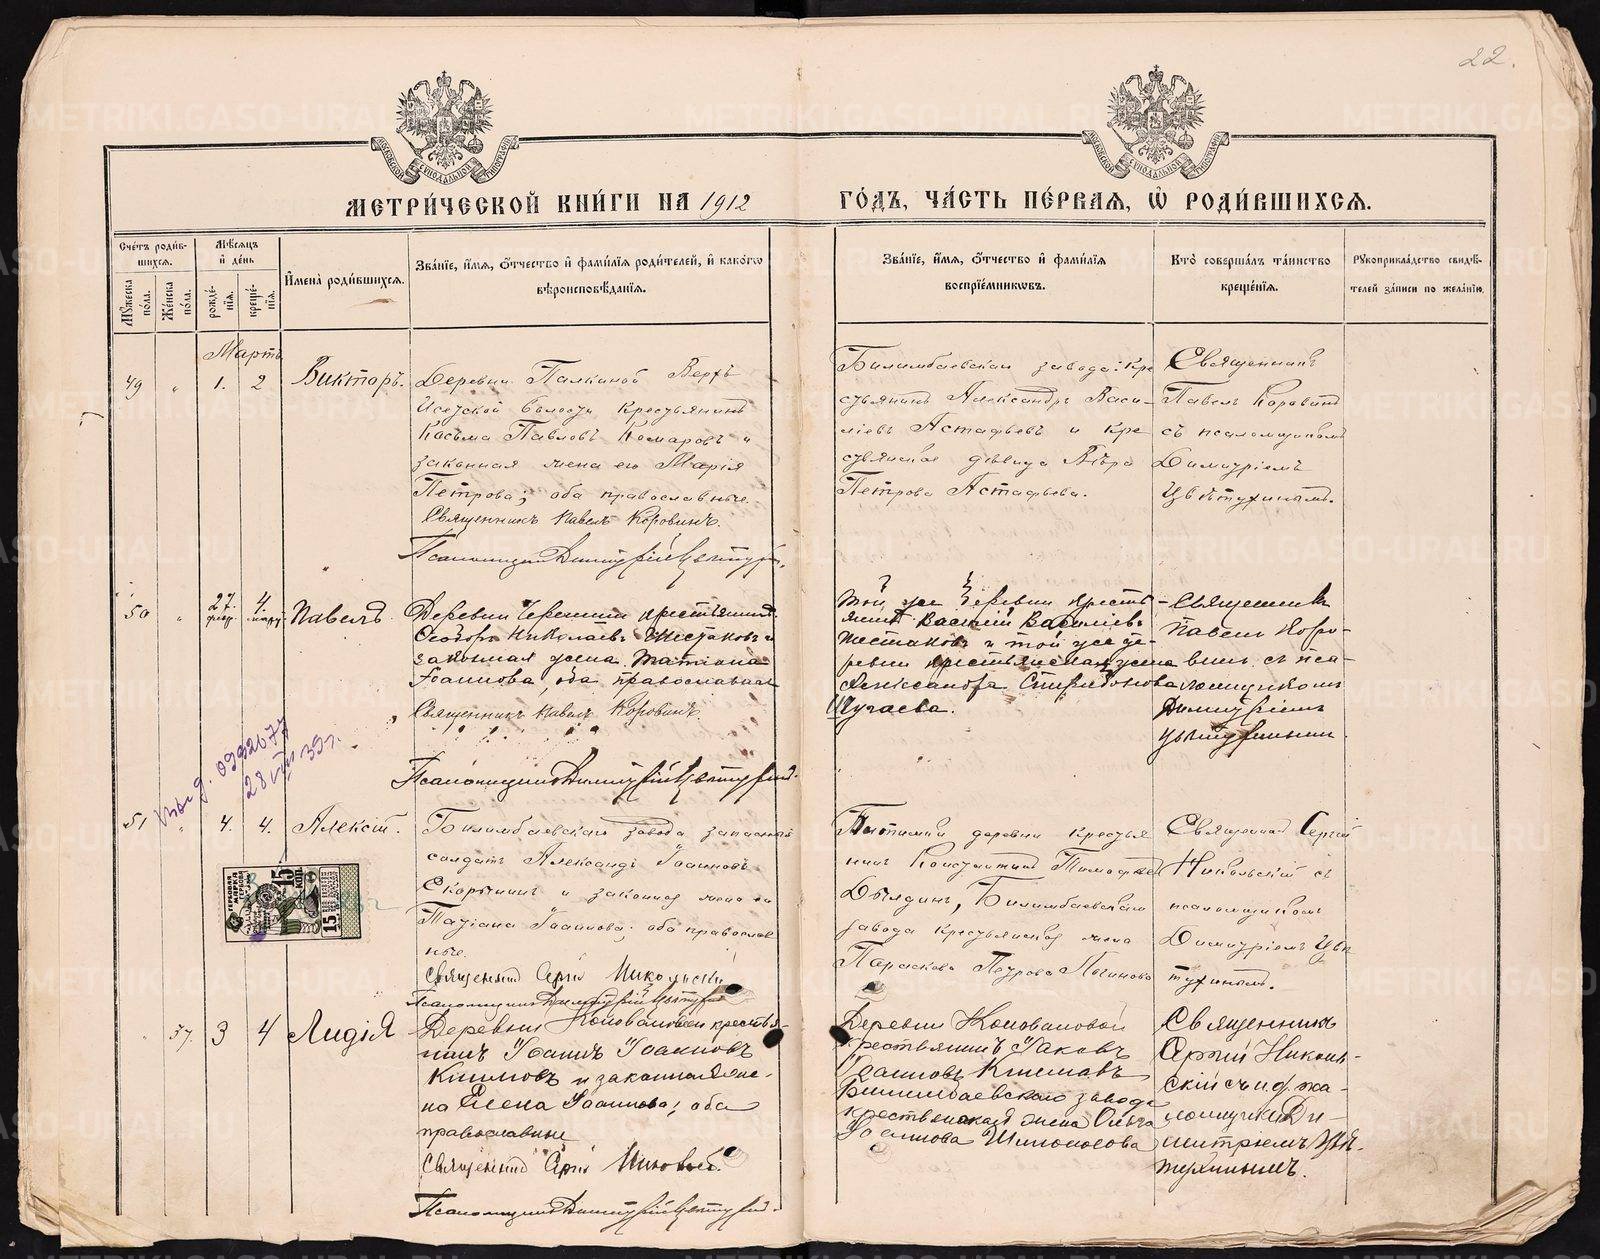 22.
МЕТРИ́ЧЕСКОЙ КНИ́ГИ НА 1912
ГО́ДЪ, ЧА́СТЬ ПЕ́РВАЯ, Ѡ РОДИ́ВШИХСЯ.
Сче́тъ роди́в-
шихся.
Мѣ́сяцъ
и҆ де́нь
Му́жеска по́ла.
Же́нска по́ла.
рожде́-
нїя.
креще́-
нїя.
И҆мена̀ роди́вшихся.
Зва́нїе, и҆́мя, ѻ҆́тчество и҆ фами́лїя роди́телей, и҆ како́гѡ
вѣроисповѣ́данїя.
Зва́нїе, и҆́мя, ѻ҆́тчество и҆ фами́лїя
воспрїе́мникѡвъ.
Кто̀ соверша́лъ та́инство
креще́нїя.
Рꙋкоприкла́дство свидѣ́-
телей за́писи по жела́нїю.
Мартъ
49 " 1. 2 Викторъ.
Деревни Палкиной Верхъ
Исетской волости крестьянинъ
Косьма Павловъ Комаровъ и
законная жена его Марія
Петрова; оба православные.
Священникъ Павелъ Коровинъ.
Псаломщикъ Димитрій Цветухин.
Билимбаевскаго завода: кре
стьянинъ Александръ Васи-
ліевъ Астафьевъ и кре
стьянская дѣвица Вѣра
Петрова Астафьева.
Священникъ
Павелъ Коровинъ
съ псаломщикомъ
Димитріемъ
Цвѣтухинымъ.
50 " 27. февр. 4. март. Павелъ
Деревни Черемши крестьянинъ
Ѳеодоръ Николаевъ Шестаковъ и
законная жена Татіана
Іоаннова, оба православные
Священникъ Павелъ Коровинъ.
Псаломщикъ Димитрій Цветухин.
Той же деревни кресть-
янинъ Василій Васильевъ
Шестаковъ и той же де-
ревни крестьянская жена
Александра Спиридонова
Чугаева.
Священникъ
Павелъ Коро-
винъ съ пса-
ломщикомъ
Димитріемъ
Цветухинымъ.
выд. 0992677
28 VIII 39 г.
51 " 4. 4. Алексій.
Билимбаевскаго завода запасный
солдатъ Александръ Іоанновъ
Скорынинъ и законная жена его
Татіана Іоаннова; оба православ
ные.
Священникъ Сергій Никольскій
Псаломщикъ Димитрій Цветухин
деревни крестья
нинъ Константинъ Тимофеевъ
Дылдинъ, Билимбаевскаго
завода крестьянская жена
Параскева Петрова
Священникъ Сергій
Никольскій съ
псаломщикомъ
Димитріемъ Цве
тухинымъ.
ГЕРБОВАЯ
МАРКА
15
КОП
15
" 37. 3 4 Лидія
Деревни Коноваловой крестья-
нинъ Іоаннъ Іоанновъ
Климовъ и законная же-
на Елена Іоаннова; оба
православные
Священникъ Сергій Никольскій.
Псаломщикъ Димитрій Цветухин.
Деревни Коноваловой
крестьянинъ Іаковъ
Іоанновъ Климовъ
Билимбаевскаго завода
крестьянская жена Ольга
Іоаннова Шилоносова
Священникъ
Сергій Николь-
скій съ и. д. пса-
ломщика Ди-
митріемъ Цвѣ-
тухинымъ.